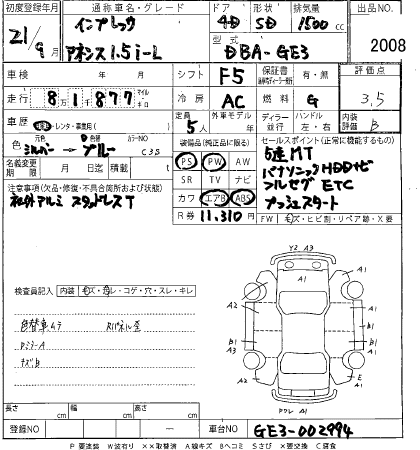 初度登録年月 通称車名・グレード ドア 形状 排気量 出品NO.
21/9月 インプレッサ 4D 5D 1500cc
アネシス1.5i-L 型式 DBA-GE3 2008
車検 年 月 シフト F5 保証書 有・無 評価点
走行 8万1千877 マイル キロ 冷房 AC 燃料 G 3.5
車歴 自家・レンタ・事業用( ) 定員 5人 外車モデル ディーラー 並行 ハンドル 左・右 内装評価 B
色 元色 シルバー → 色替 ブルー カラーNO C3S
装備品(純正品に限る) セールスポイント(正常に機能するもの)
名義変更期限 月 日迄 積載( ) PS PW AW 5速MT
SR TV ナビ パナソニックHDDナビ
注意事項(欠品・修復・不具合箇所および状態) カワ エアB ABS フルセグ ETC
社外アルミ スタッドレスT R券 11,310円 プッシュスタート
FW キズ・ヒビ割・リペア跡・X要
検査員記入 内装 キズ・汚レ・コゲ・穴・スレ・キレ
色替車ムラ Rパネル歪
DミラーA
キズB
V2 A3
A1
A1
A2
A1
B1
A3
B1
A1
A2
E
A1
A1
長さ cm 幅 cm 高さ cm
登録NO 車台NO GE3-002994
P 要塗装 W波有り ××取替済 A線キズ Bヘコミ Sさび ×要交換 C腐食